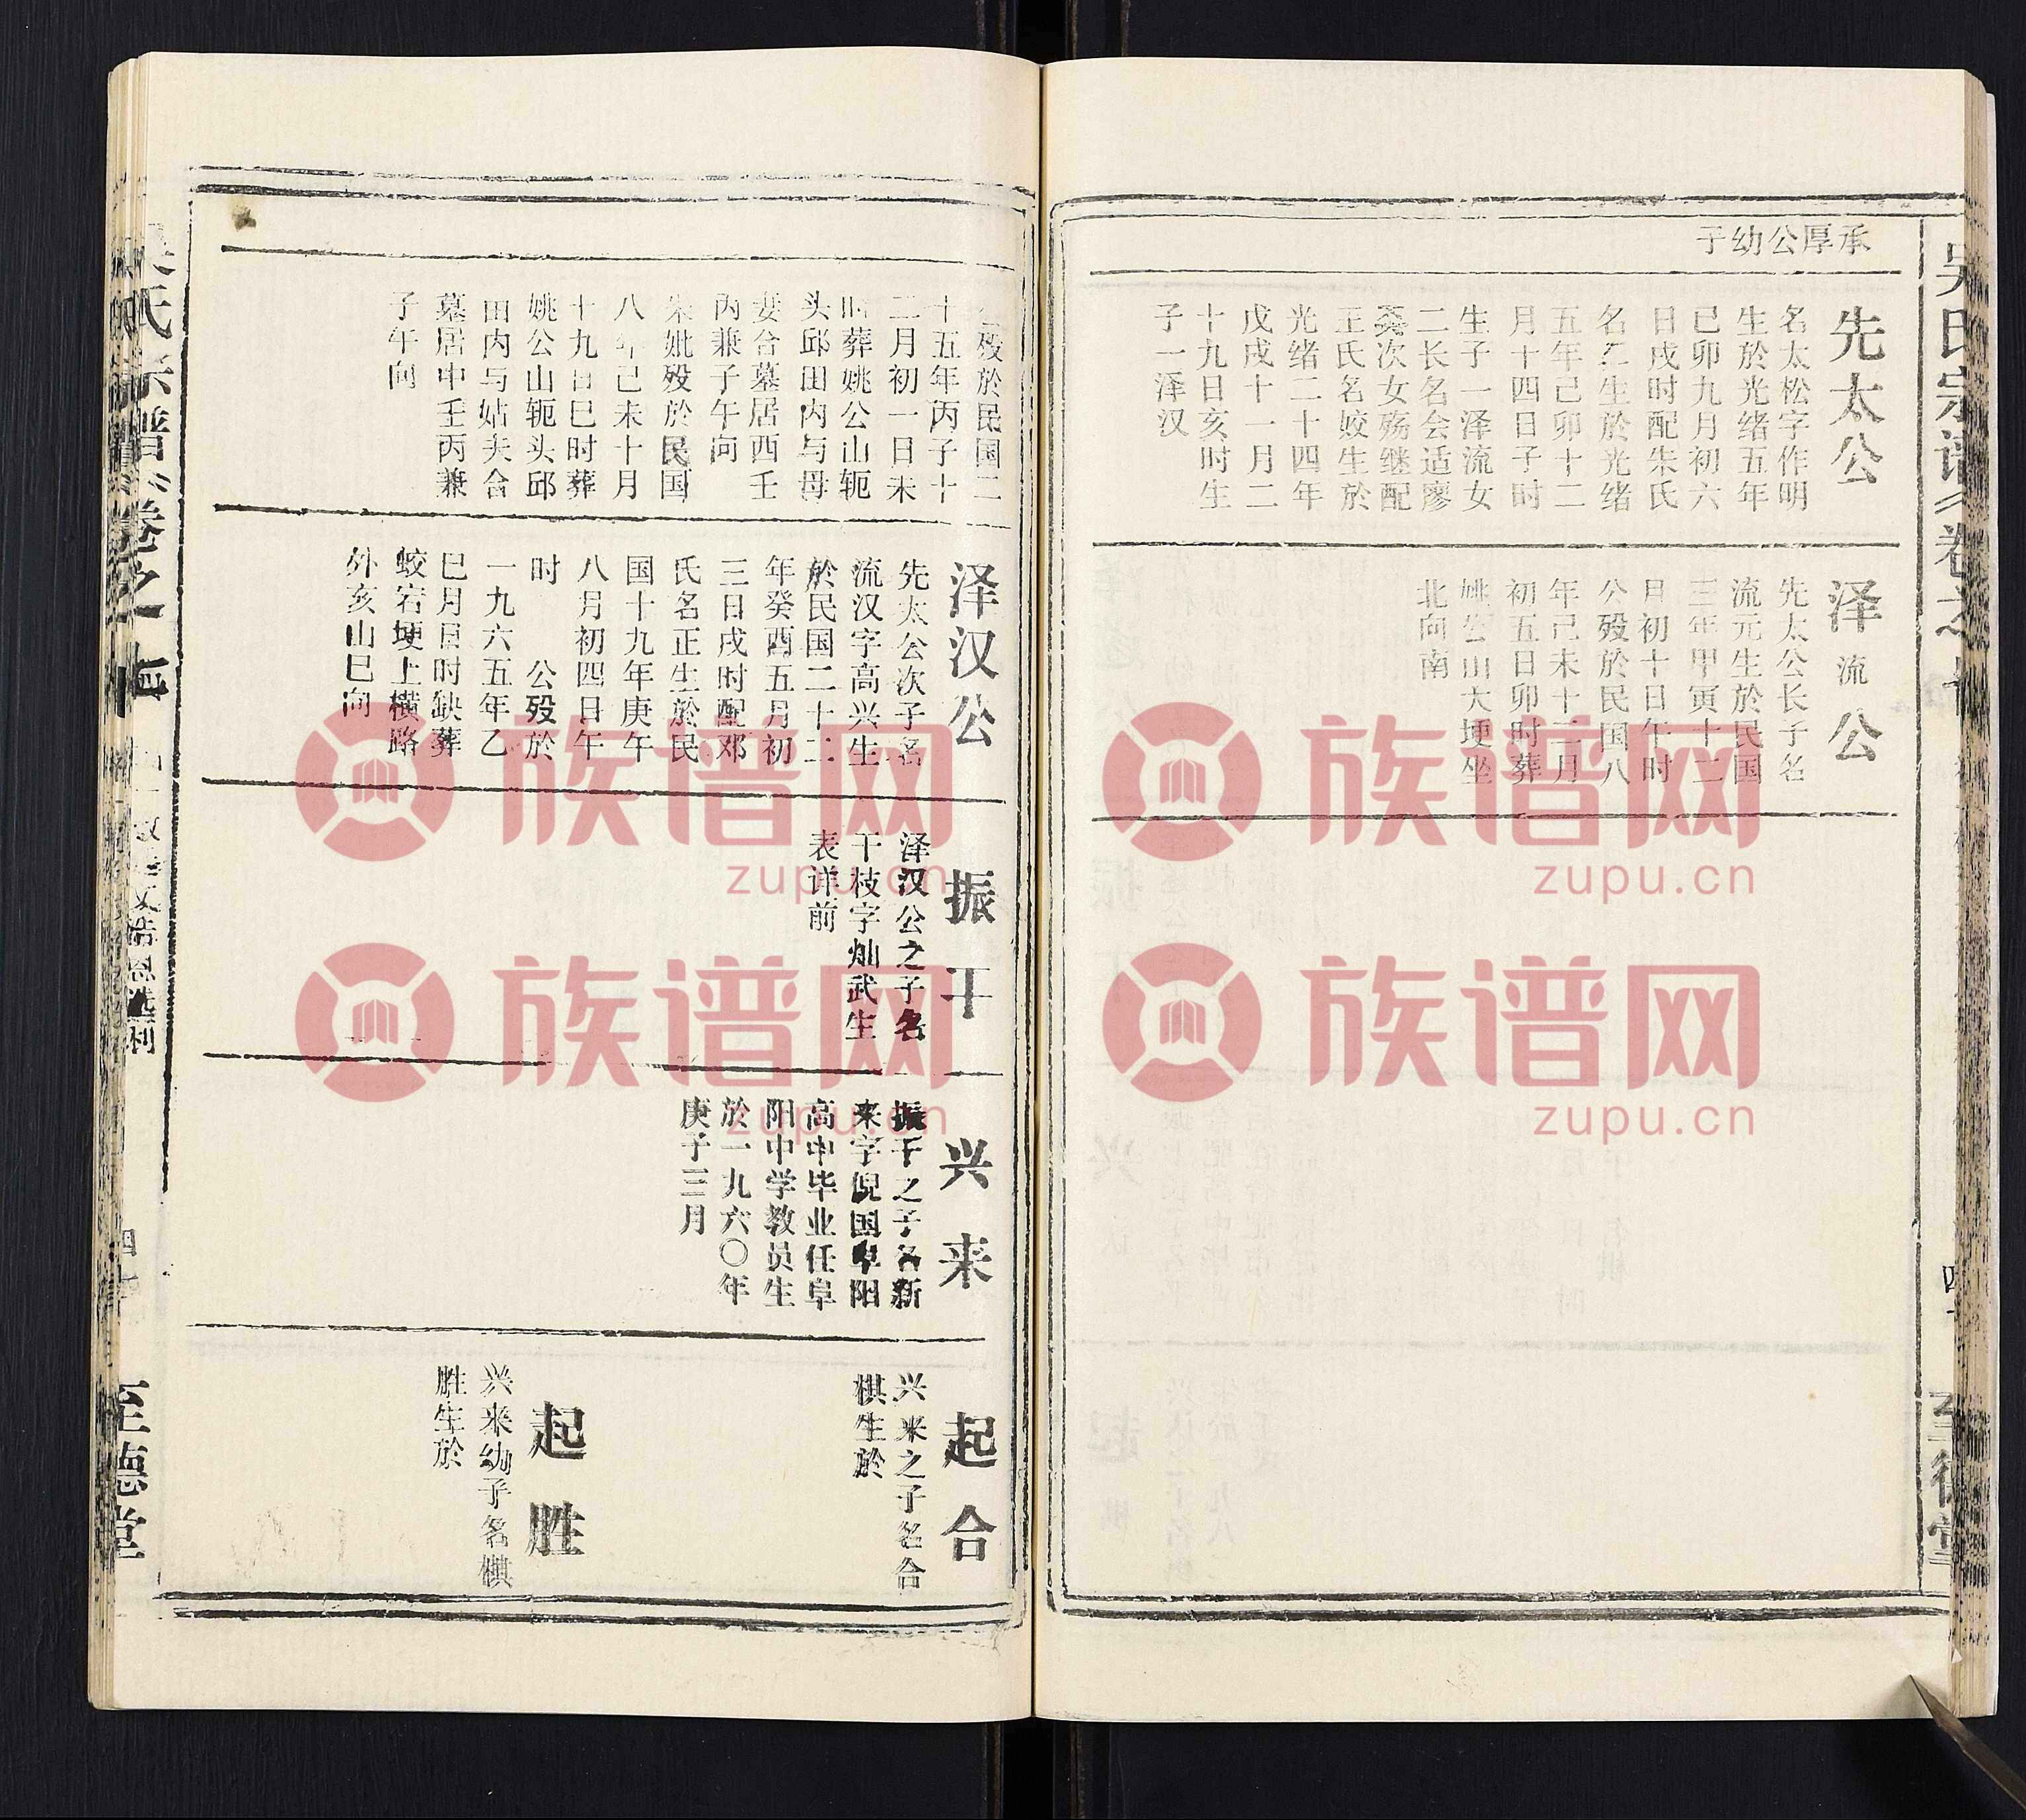 承厚公幼子
先太公
名太松字作明
生於光绪五年
己卯九月初六
日戌时配朱氏
名乙生於光绪
五年己卯十二
月十四日子时
生子一泽流女
二长名会适廖
龚次女殇继配
王氏名姣生於
光绪二十四年
戊戌十一月二
十九日亥时生
子一泽汉
泽流公
先太公长子名
流元生於民国
三年甲寅十二
月初十日午时
公殁於民国八
年己未十二月
初五日卯时葬
姚公山大埂坐
北向南
吴氏宗谱
至德堂
殁於民国二
十五年丙子十
二月初一日未
时葬姚公山轭
头邱田内与母
妾合墓居西壬
丙兼子午向
朱妣殁於民国
八年己未十月
十九日巳时葬
姚公山轭头邱
田内与姑夫合
墓居中壬丙兼
子午向
泽汉公
先太公次子名
流汉字高兴生
於民国二十二
年癸酉五月初
三日戌时配邓
氏名正生於民
国十九年庚午
八月初四日午
时 公殁於
一九六五年乙
巳月日时缺葬
蛟宕埂上横路
外亥山巳向
振干
泽汉公之子名
干枝字灿武生
表详前
兴来
振干之子名新
来字倪国阜阳
高中毕业任阜
阳中学教员生
於一九六〇年
庚子三月
起合
兴来之子名合
棋生於
起胜
兴来幼子名棋
胜生於
氏宗谱
卷之
至德堂
族谱网
zupu.cn
族谱网
zupu.cn
族谱网
zupu.cn
族谱网
zupu.cn